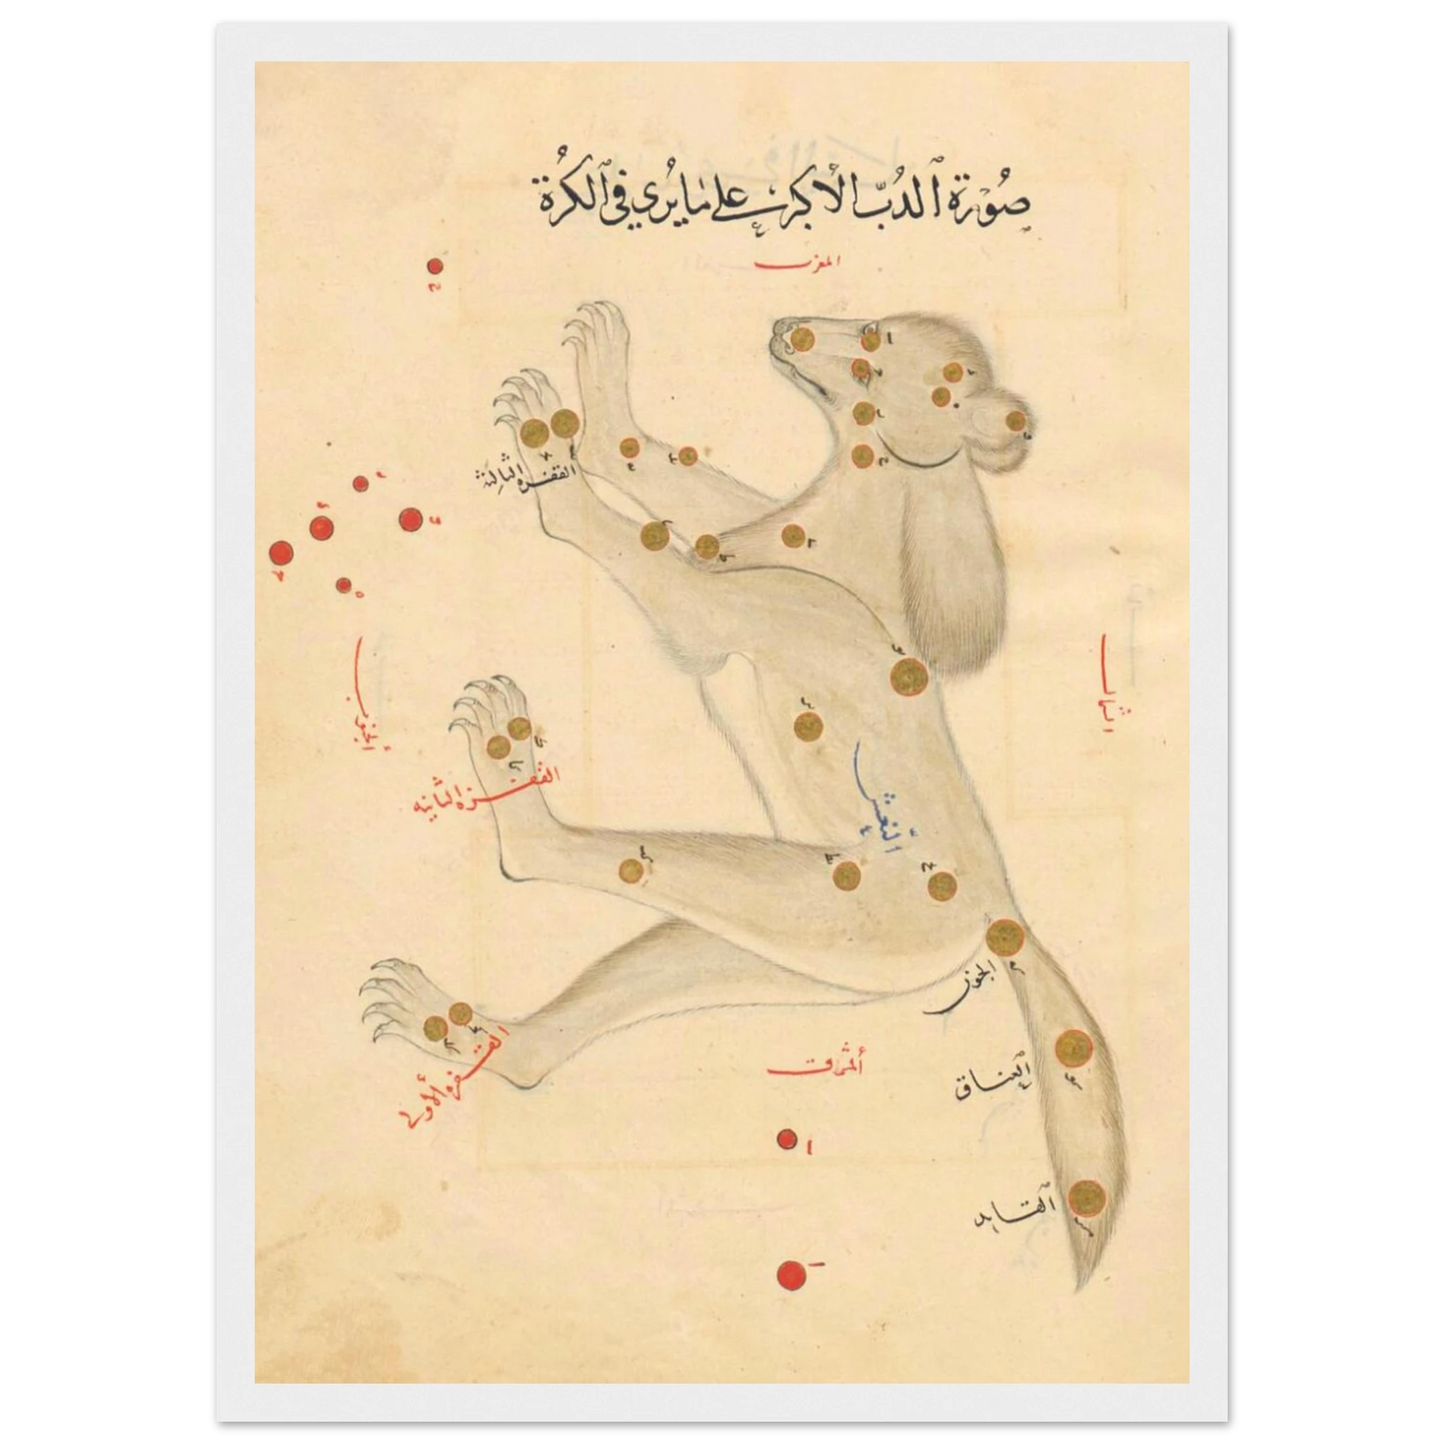 صُورَة ٱلدُبّ الأكبر على مَا يُرى في ٱلكُرَة
المغرب
القفزه الثالثة
الجنوب
الشمال
القفزه الثانيه
النعش
الجون
القفزه الأولى
المشرق
العناق
القايد